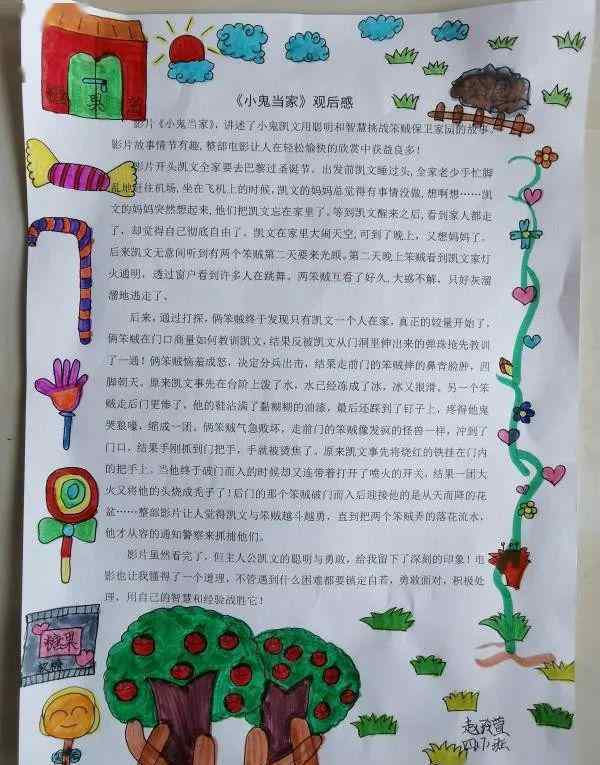 《小鬼当家》观后感
影片《小鬼当家》，讲述了小鬼凯文用聪明和智慧挑战笨贼保卫家园的故事，
影片故事情节有趣，整部电影让人在轻松愉快的欣赏中获益良多！
影片开头凯文全家要去巴黎过圣诞节。出发前凯文睡过头，全家老少手忙脚
乱地赶往机场，坐在飞机上的时候，凯文的妈妈总觉得有事情没做，想啊想……凯
文的妈妈突然想起来，他们把凯文忘在家里了。等到凯文醒来之后，看到家人都走
了，却觉得自己彻底自由了。凯文在家里大闹天空，可到了晚上，又想妈妈了。
后来凯文无意间听到有两个笨贼第二天要来光顾。第二天晚上笨贼看到凯文家灯
火通明，透过窗户看到许多人在跳舞。两笨贼互看了好久，大惑不解，只好灰溜
溜地逃走了。
后来，通过打探，俩笨贼终于发现只有凯文一个人在家，真正的较量开始了。
俩笨贼在门口商量如何教训凯文，结果反被凯文从门洞里伸出来的弹珠抢先教训
了一通！俩笨贼恼羞成怒，决定分兵出击，结果走前门的笨贼摔的鼻青脸肿，四
脚朝天。原来凯文事先在台阶上泼了水，水已经冻成了冰，冰又很滑。另一个笨
贼走后门更惨了，他的鞋沾满了黏糊糊的油漆，最后还踩到了钉子上，疼得他鬼
哭狼嚎，缩成一团。俩笨贼气急败坏，走前门的笨贼像发疯的怪兽一样，冲到了
门口，结果手刚抓到门把手，手就被烫焦了。原来凯文事先将烧红的铁挂在门内
的把手上。当他终于破门而入的时候却又连带着打开了喷火的开关，结果一团大
火又将他的头烧成秃子了！后门的那个笨贼破门而入后迎接他的是从天而降的花
盆……整部影片让人觉得凯文与笨贼越斗越勇，直到把两个笨贼弄的落花流水，
他才从容的通知警察来抓捕他们。
影片虽然看完了，但主人公凯文的聪明与勇敢，给我留下了深刻的印象！电
影也让我懂得了一个道理，不管遇到什么困难都要镇定自若，勇敢面对，积极处
理，用自己的智慧和经验战胜它！
糖果